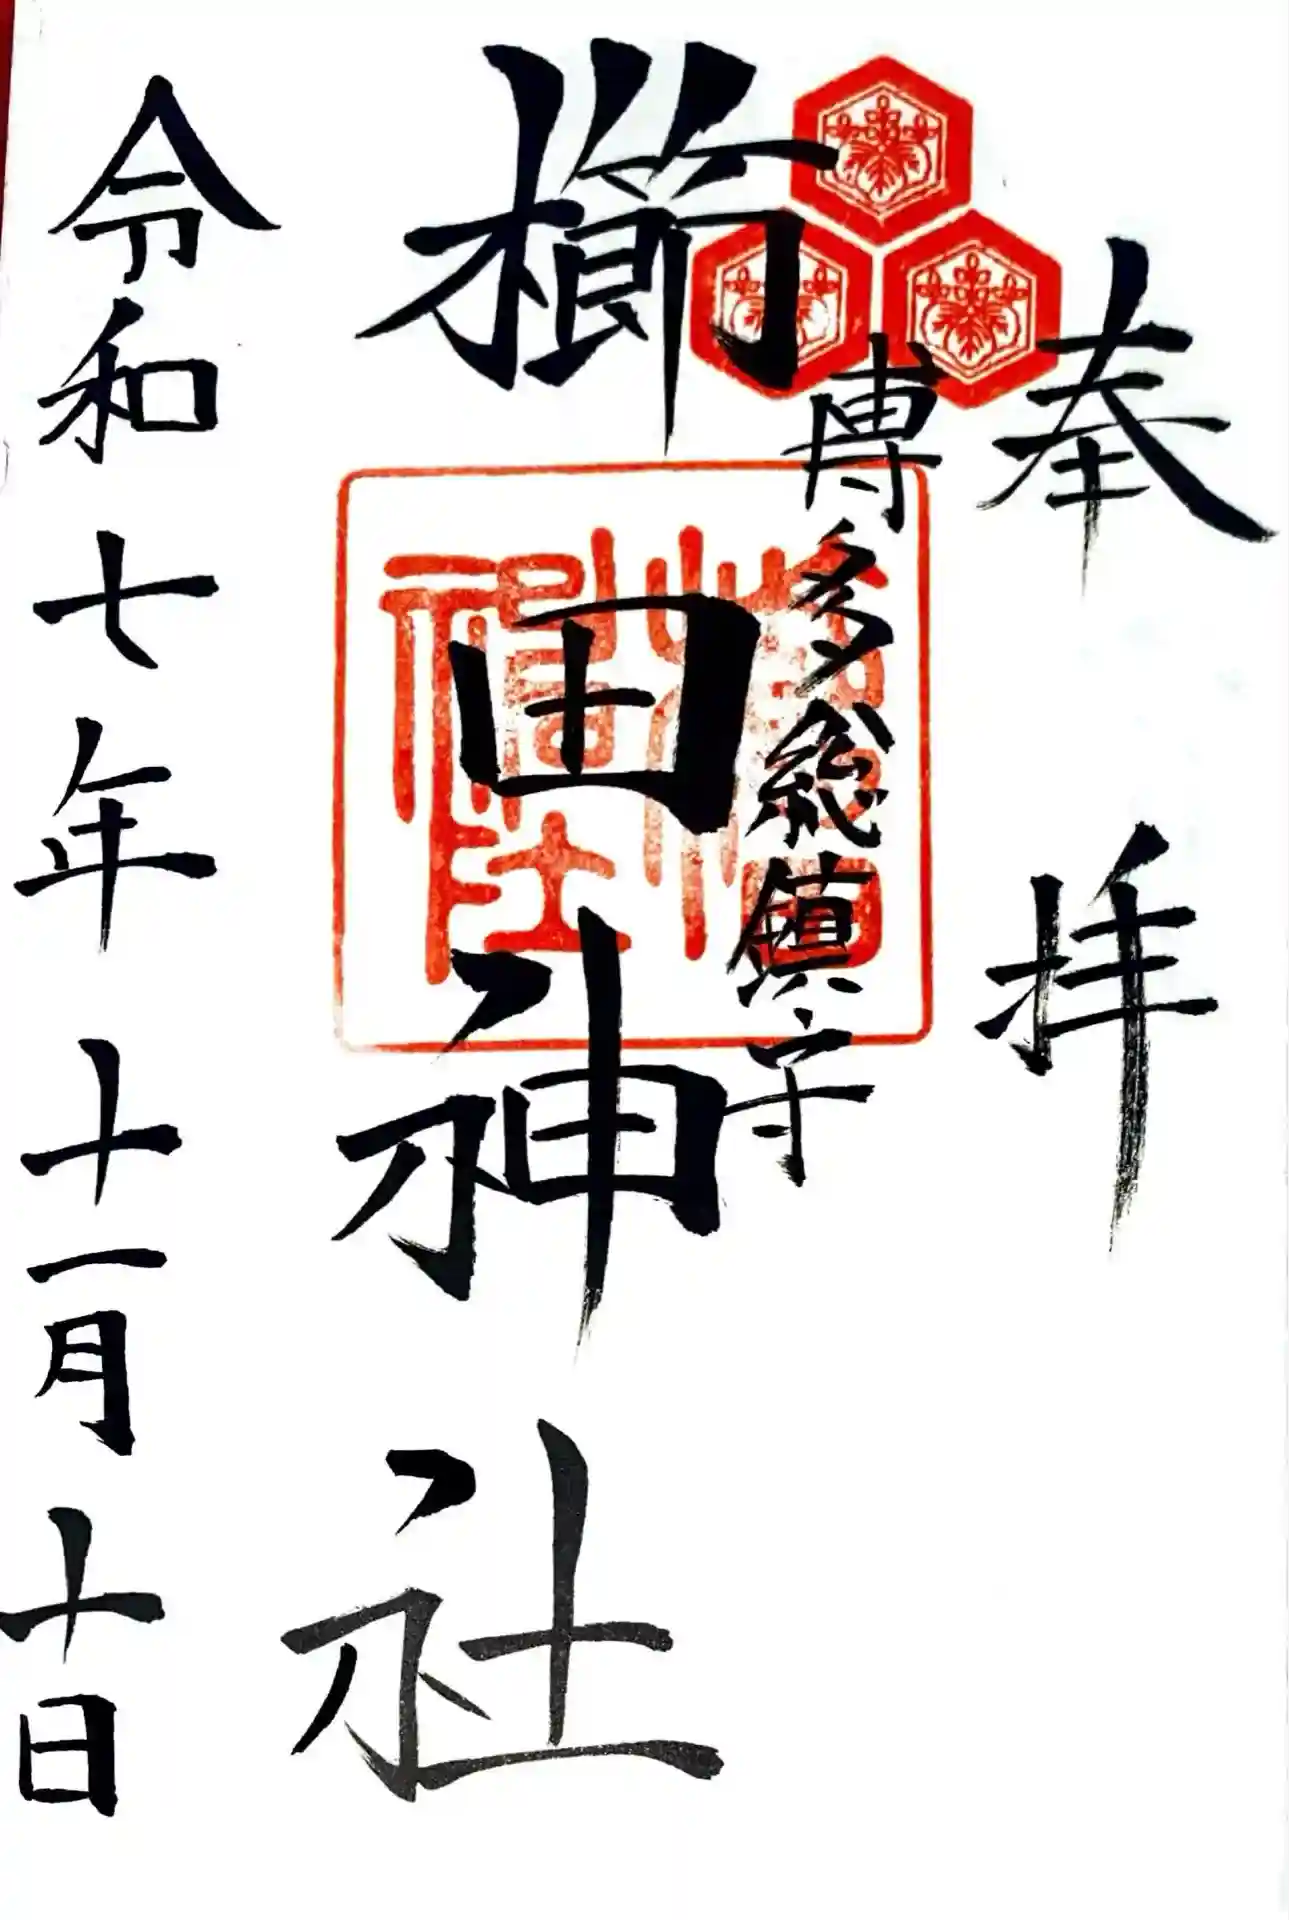 奉拝
博多総鎮守
櫛田神社
令和七年十一月十日